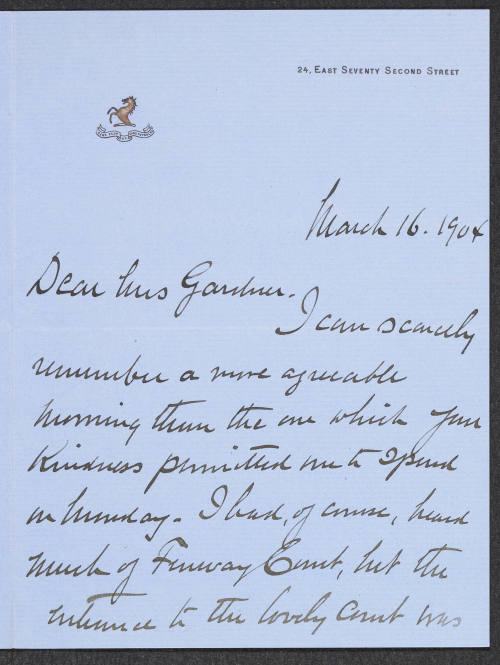 24, East Seventy Second Street
March 16. 1904
Dear Mrs Gardner.
I can scarcely
remember a more agreeable
morning than the one which your
kindness permitted me to spend
on Monday. I had, of course, heard
much of Fenway Court, but the
entrance to the lovely court was